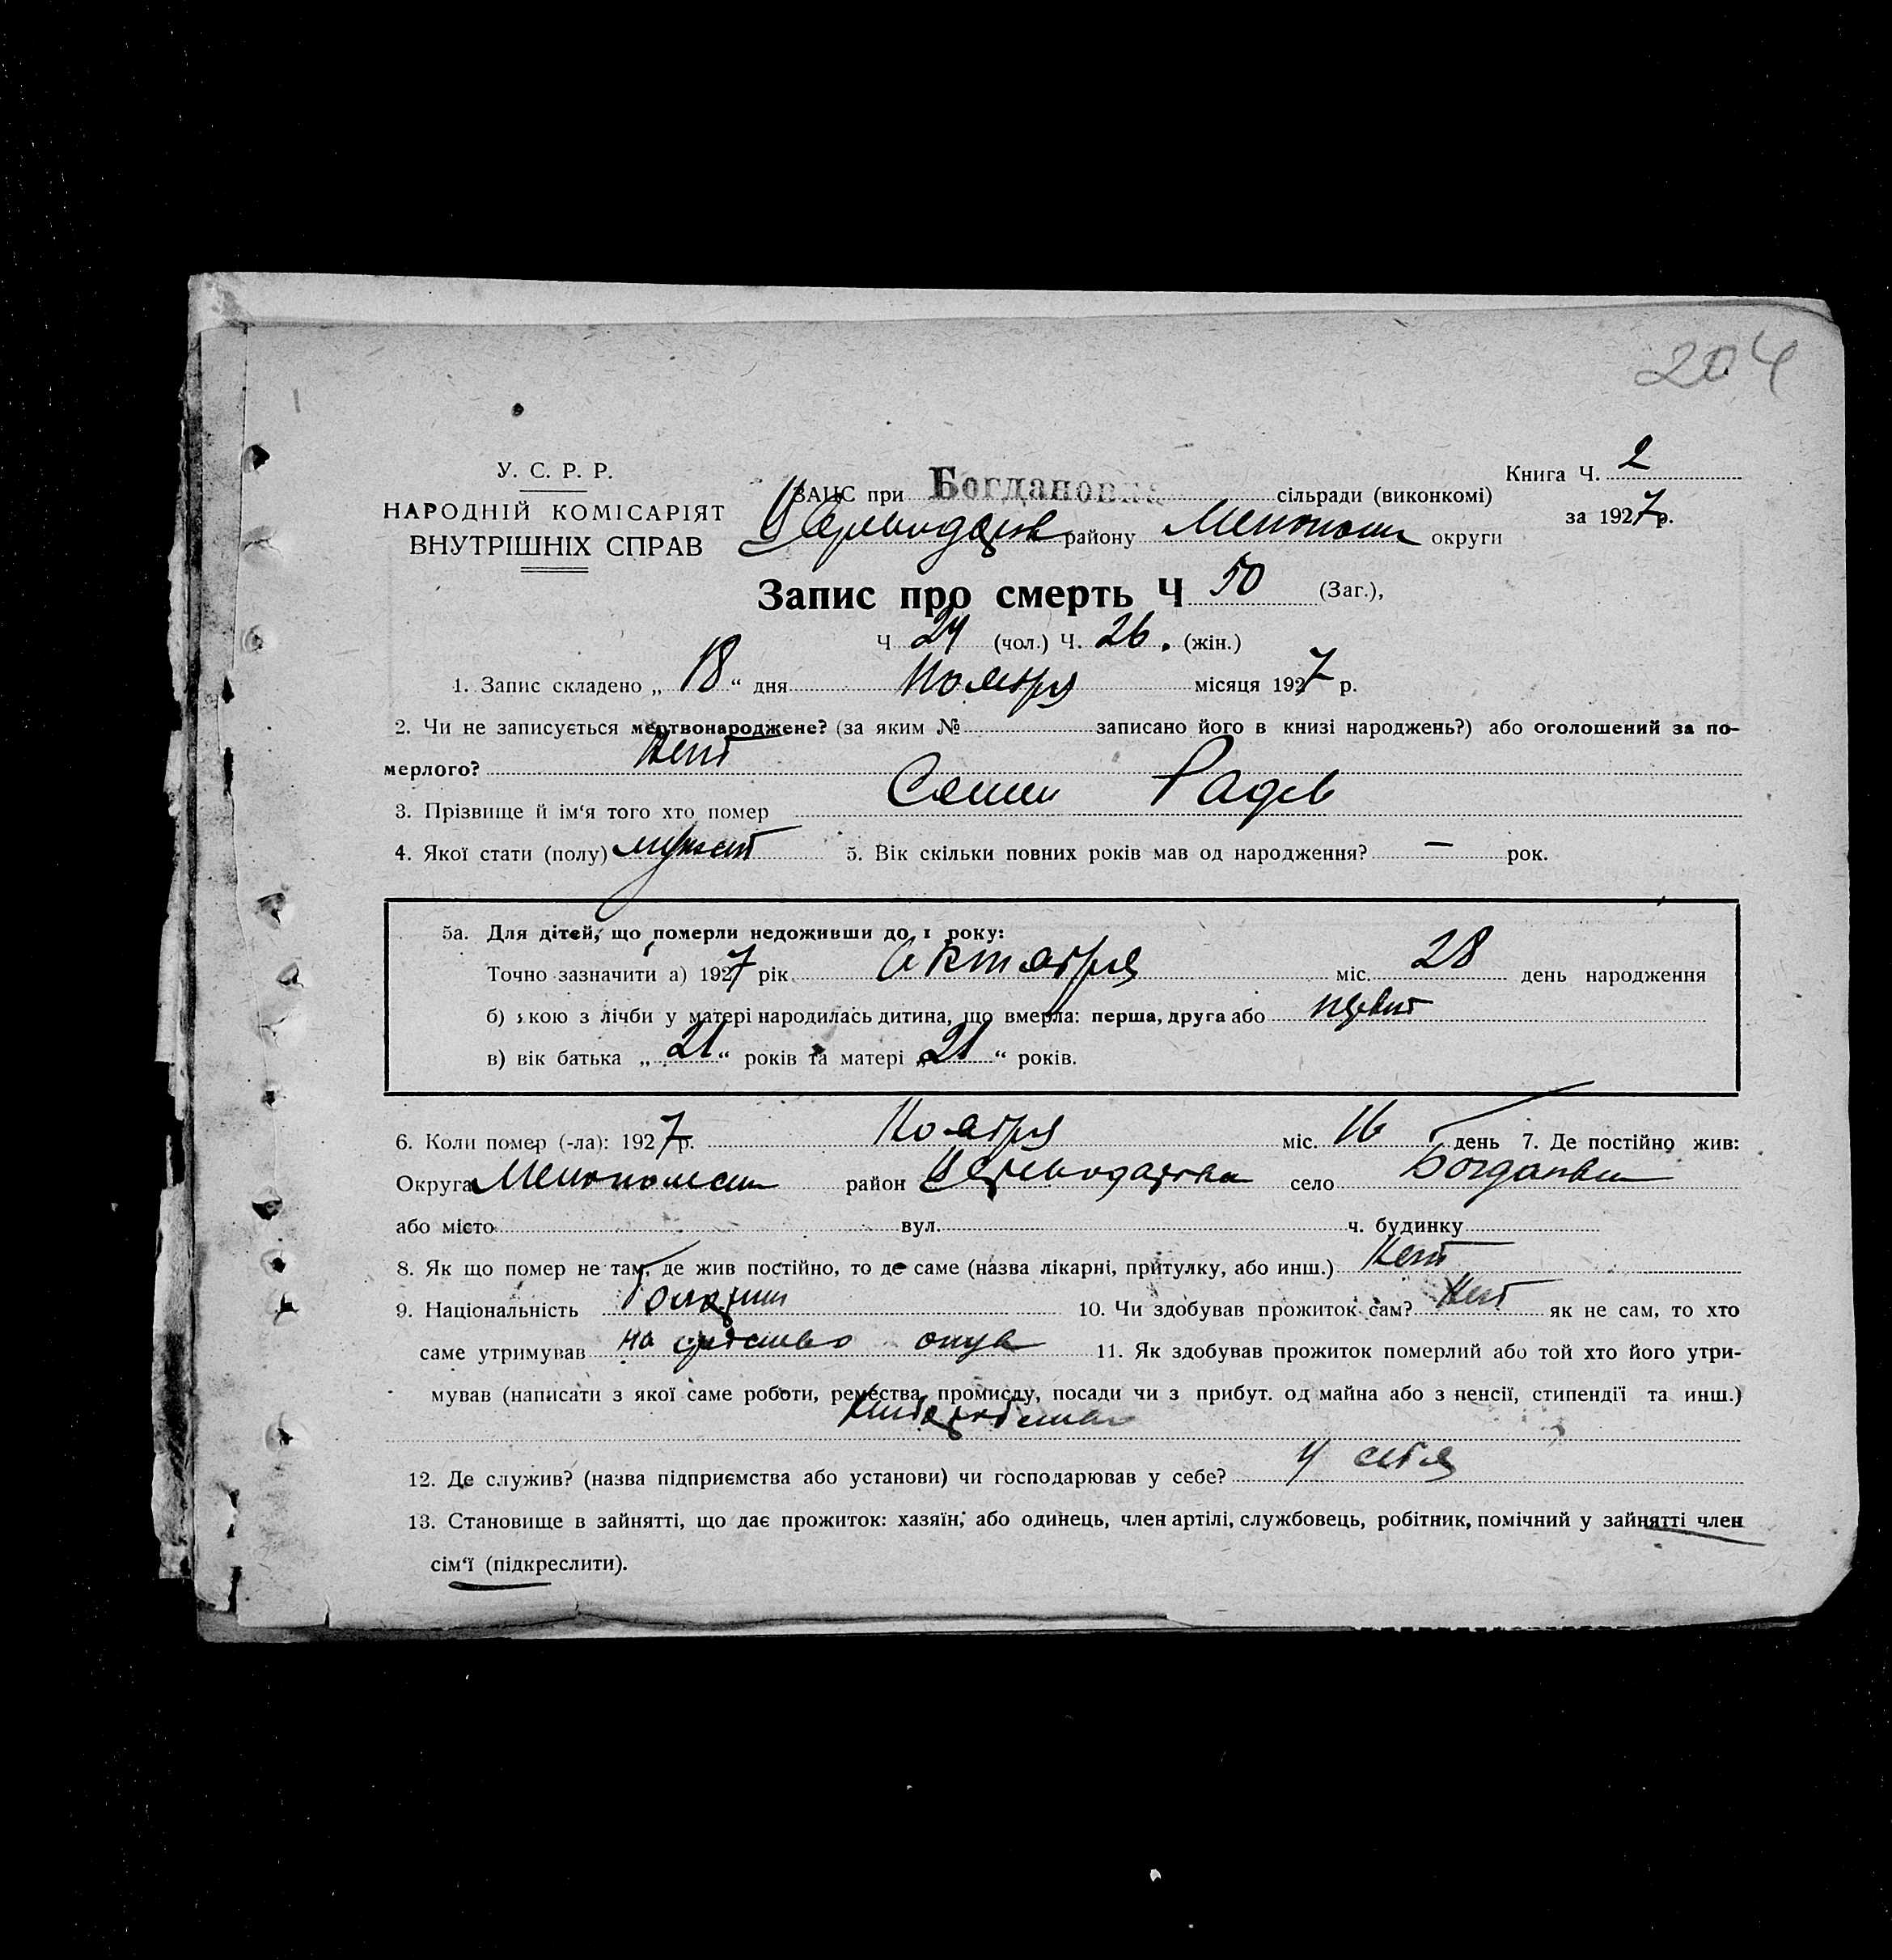 204
У. С. Р. Р.
НАРОДНІЙ КОМІСАРІЯТ
ВНУТРІШНІХ СПРАВ
ЗАЦС при Богдановка сільради (виконкомі)
району Мелитопольск округи
Книга Ч. 2
за 1927 р.
Запис про смерть Ч 50 (Заг.),
Ч 24 (чол.) Ч. 26. (жін.)
1. Запис складено „ 18 “ дня Ноября місяця 1927 р.
2. Чи не записується мертвонароджене? (за яким № записано його в книзі народжень?) або оголошений за по-
мерлого? Нет
3. Прізвище й ім‘я того хто помер Радев
4. Якої стати (полу) мужск 5. Вік скільки повних років мав од народження? — рок.
5а. Для дітей, що померли недоживши до 1 року:
Точно зазначити а) 1927 рік Октября міс. 28 день народження
б) якою з лічби у матері народилась дитина, що вмерла: перша, друга або перва
в) вік батька „ 21 “ років та матері „ 21 “ років.
6. Коли помер (-ла): 1927 р. Ноября міс. 16 день 7. Де постійно жив:
Округа Мелитопольск район село Богдановка
або місто вул. ч. будинку
8. Як що помер не там, де жив постійно, то де саме (назва лікарні, притулку, або инш.) Нет
9. Національність Болгарин 10. Чи здобував прожиток сам? Нет як не сам, то хто
саме утримував на средства отца 11. Як здобував прожиток померлий або той хто його утри-
мував (написати з якої саме роботи, ремества, промислу, посади чи з прибут. од майна або з пенсії, стипендії та инш.)
12. Де служив? (назва підприємства або установи) чи господарював у себе? У себя
13. Становище в зайнятті, що дає прожиток: хазяїн, або одинець, член артілі, службовець, робітник, помічний у зайнятті член
сім‘ї (підкреслити).